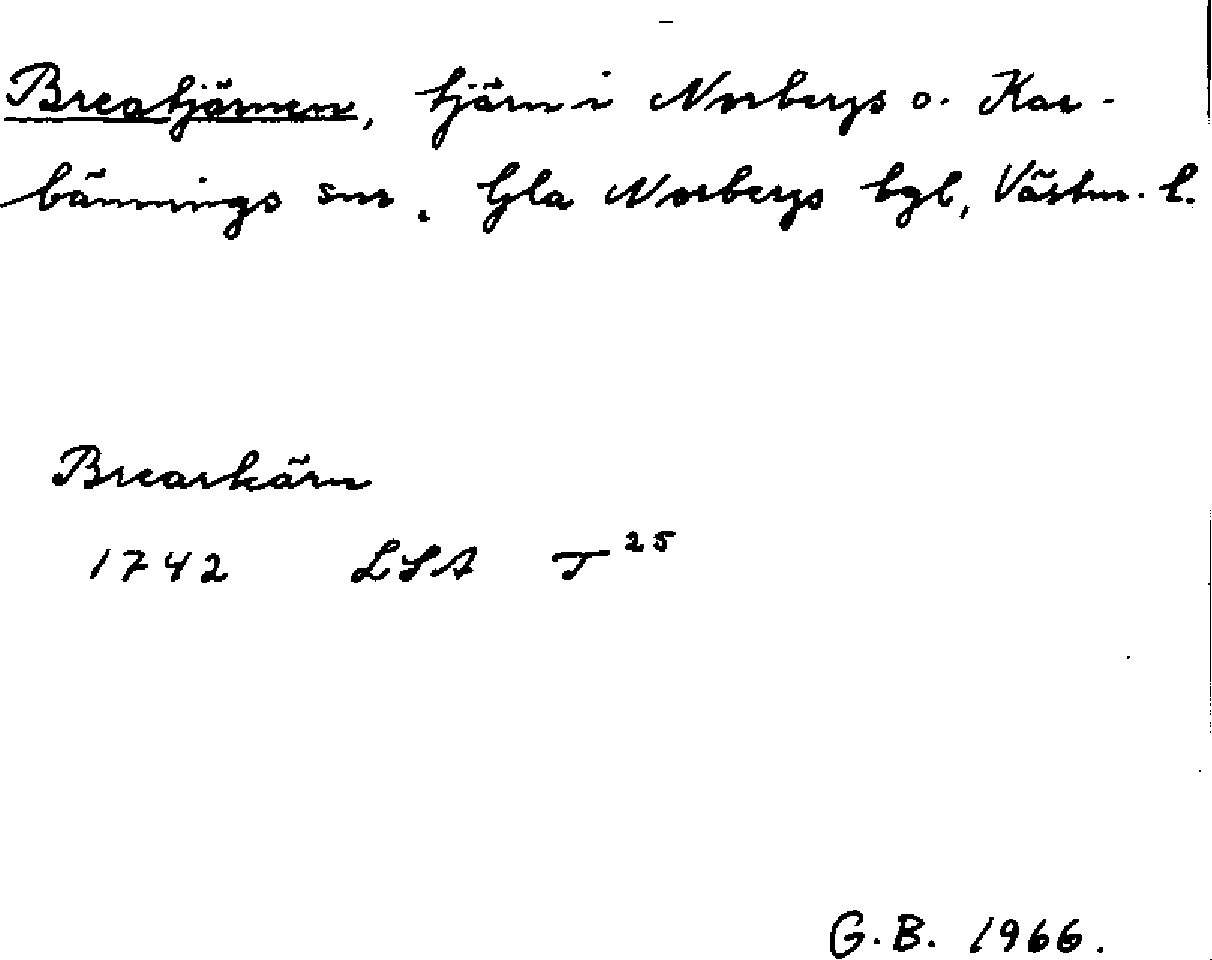 Breatjärnen, tjärn i Norbergs o. Kar-
bännings snr. Gla Norbergs bgl, Västm. l.
Brearkärn
1742 LSA T 25
G.B. 1966.